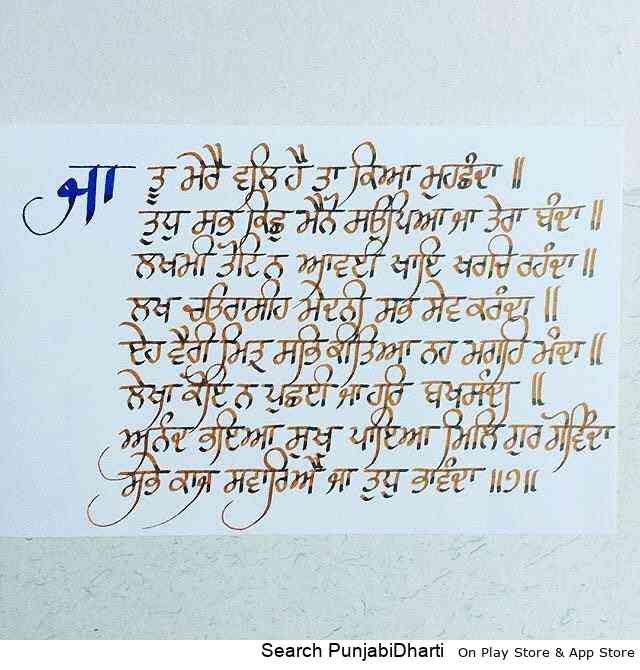 ਜਾ ਤੂ ਮੇਰੈ ਵਲਿ ਹੈ ਤਾ ਕਿਆ ਮੁਹਛੰਦਾ ॥
ਤੁਧੁ ਸਭ ਕਿਛੁ ਮੈਨੋ ਸਉਪਿਆ ਜਾ ਤੇਰਾ ਬੰਦਾ ॥
ਲਖਮੀ ਤੋਟਿ ਨ ਆਵਈ ਖਾਇ ਖਰਚਿ ਰਹੰਦਾ ॥
ਲਖ ਚਉਰਾਸੀਹ ਮੇਦਨੀ ਸਭ ਸੇਵ ਕਰੰਦਾ ॥
ਏਹ ਵੈਰੀ ਮਿਤ੍ਰ ਸਭਿ ਕੀਤਿਆ ਨਹ ਮਗਹਿ ਮੰਦਾ ॥
ਲੇਖਾ ਕੋਇ ਨ ਪੁਛਈ ਜਾ ਹਰਿ ਬਖਸੰਦਾ ॥
ਅਨੰਦ ਭਇਆ ਸੁਖੁ ਪਾਇਆ ਮਿਲਿ ਗੁਰ ਗੋਵਿੰਦਾ
ਸਭੇ ਕਾਜ ਸਵਾਰਿਐ ਜਾ ਤੁਧੁ ਭਾਵੰਦਾ ॥੭॥
Search PunjabiDharti On Play Store & App Store